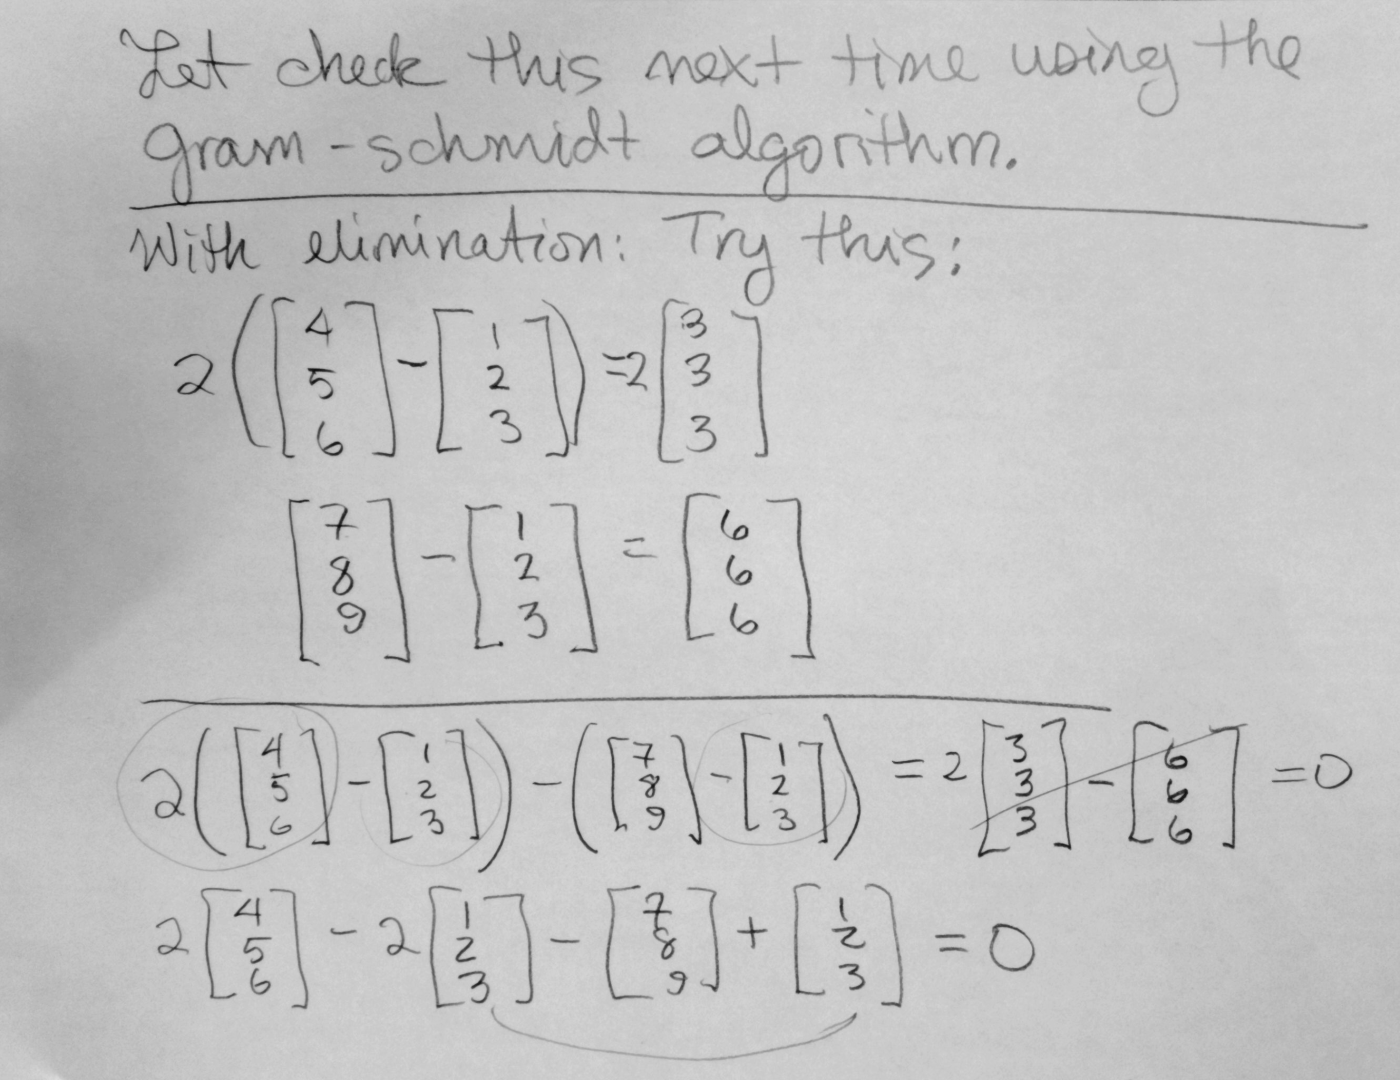 Let check this next time using the
gram-schmidt algorithm.
With elimination: Try this:
2([4 5 6] - [1 2 3]) = 2[3 3 3]
[7 8 9] - [1 2 3] = [6 6 6]
2([4 5 6] - [1 2 3]) - ([7 8 9] - [1 2 3]) = 2[3 3 3] - [6 6 6] = 0
2[4 5 6] - 2[1 2 3] - [7 8 9] + [1 2 3] = 0